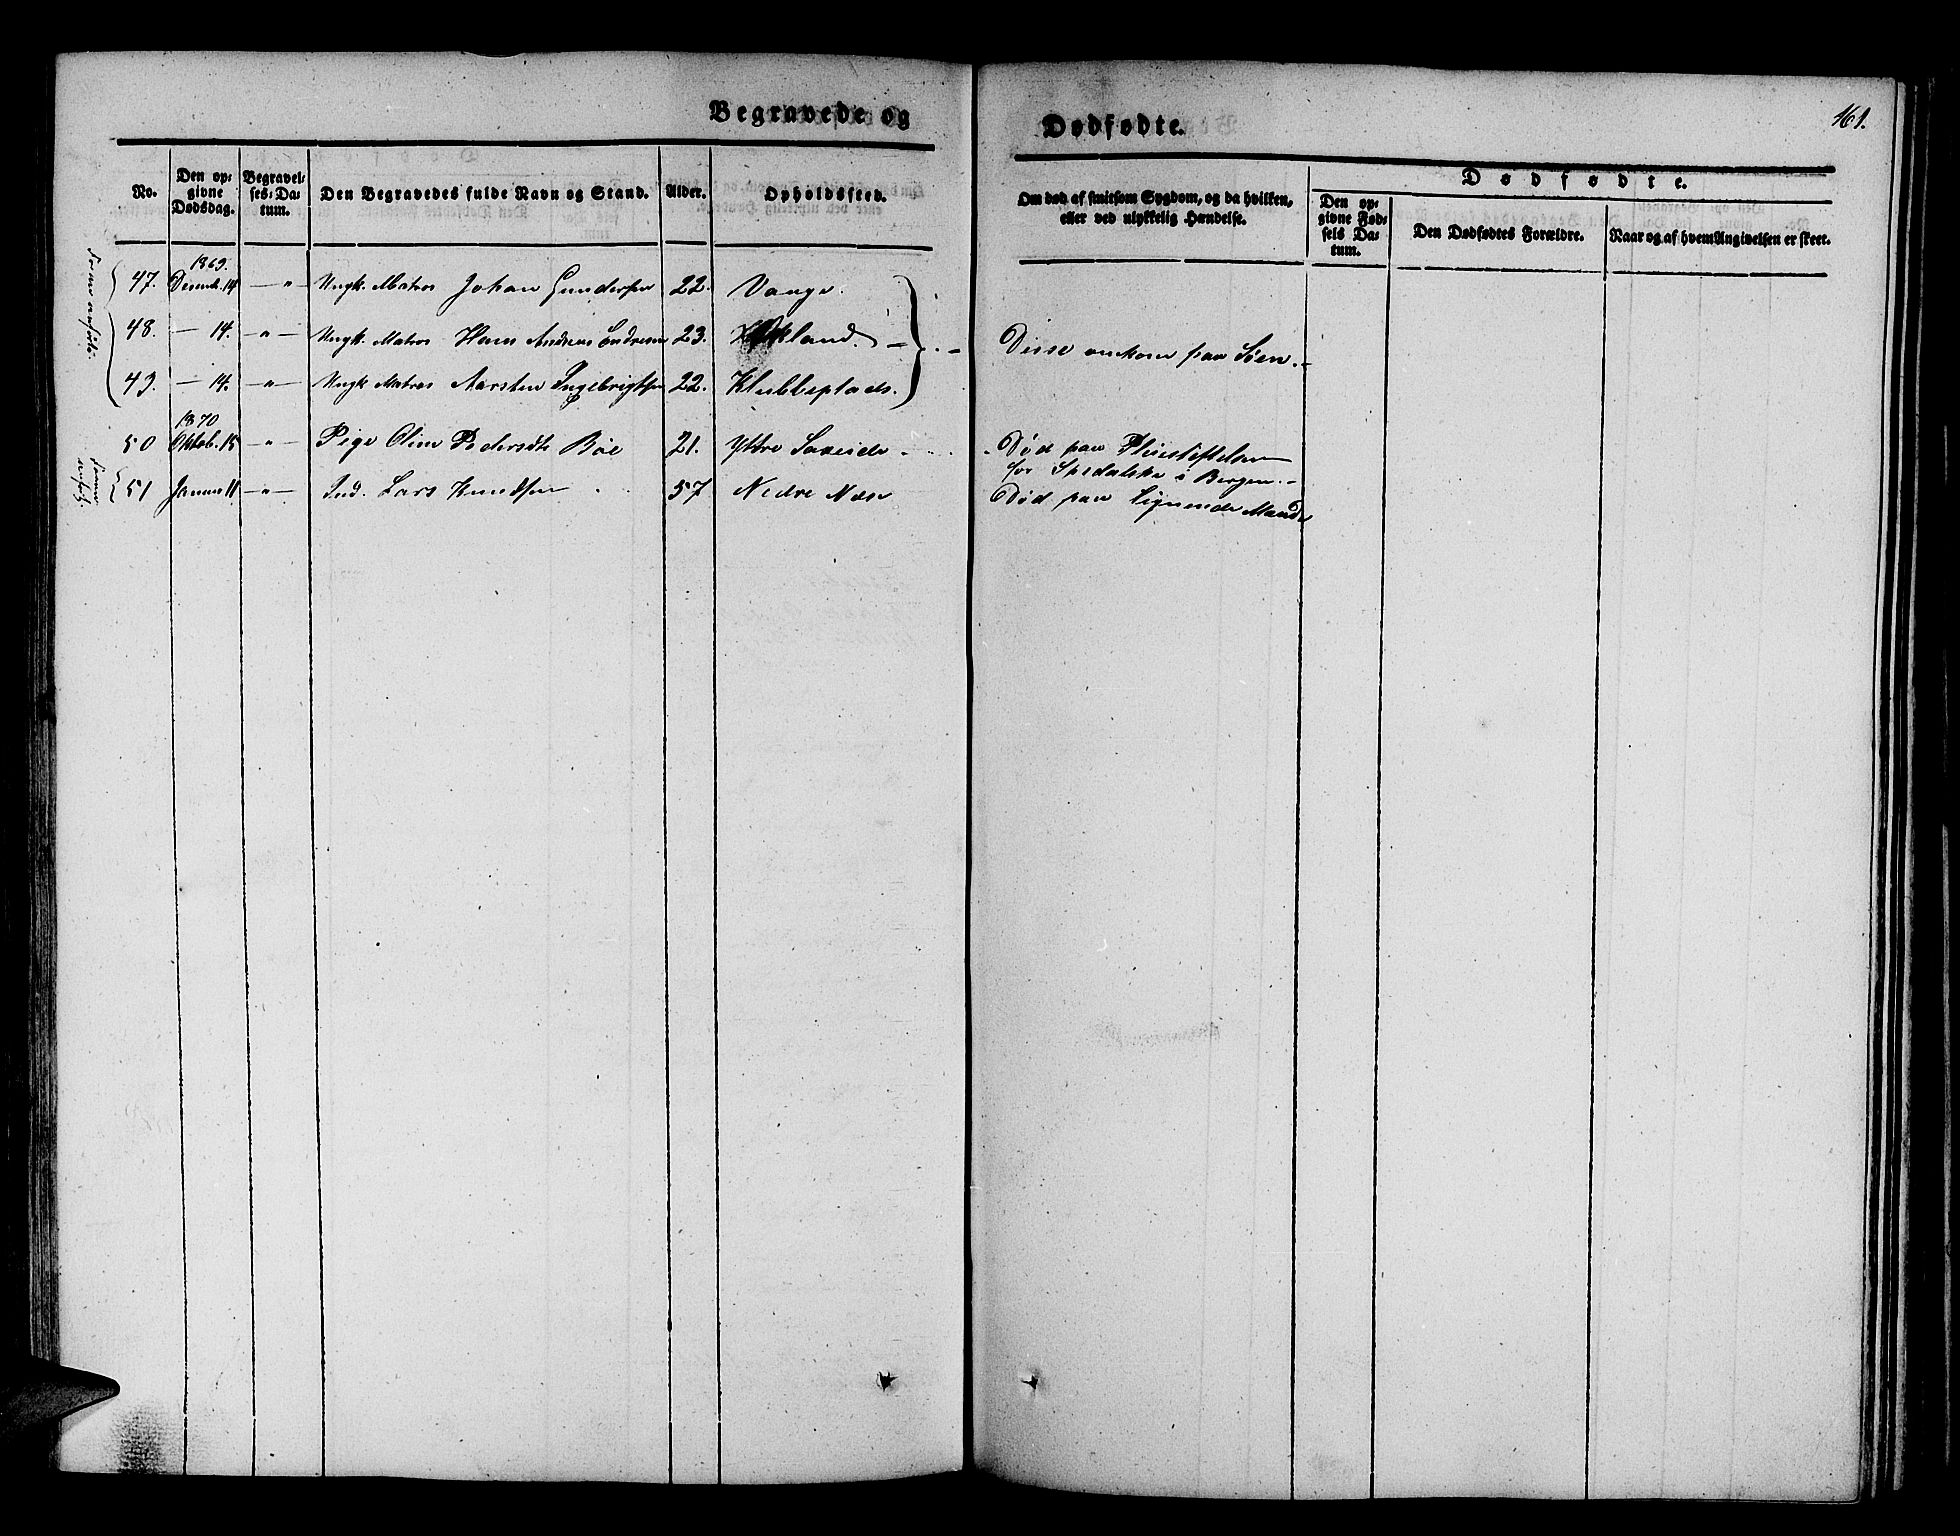 Begravede og
Dødfødte.
161.
No.
Den op-
givne
Dødsdag.
Begravel-
ses-Da-
tum.
Den Begravedes fulde Navn og Stand.
Alder.
Opholdssted.
Om død af smitsom Sygdom, og da hvilken,
eller ved ulykkelig Hændelse.
Dødfødte.
Den op-
givne Fød-
sels Da-
tum.
Den Dødfødtes Forældre.
Naar og af hvem Angivelsen er skeet.
1869.
47. Decemb. 14 — " Ungk. Matros Johan Gundersen 22. Vange.
48. — 14. — " — Ungk. Matros Hans Andreas Endresen 23. 
49. — 14. — " — Ungk. Matros Aarsten Ingebrigtsen 22. Klubbeplads.
Disse omkom paa Søen.
1870
50 Oktob. 15 — " — Pige Oline Pedersdtr Bøe 21. Yttre Saxeide
Død paa Pleiestiftelsen
for Spedalske i Bergen.
51 Januar 11 — " — Ind. Lars Knudsen 57 Nedre Næse
Død paa lignende Maade